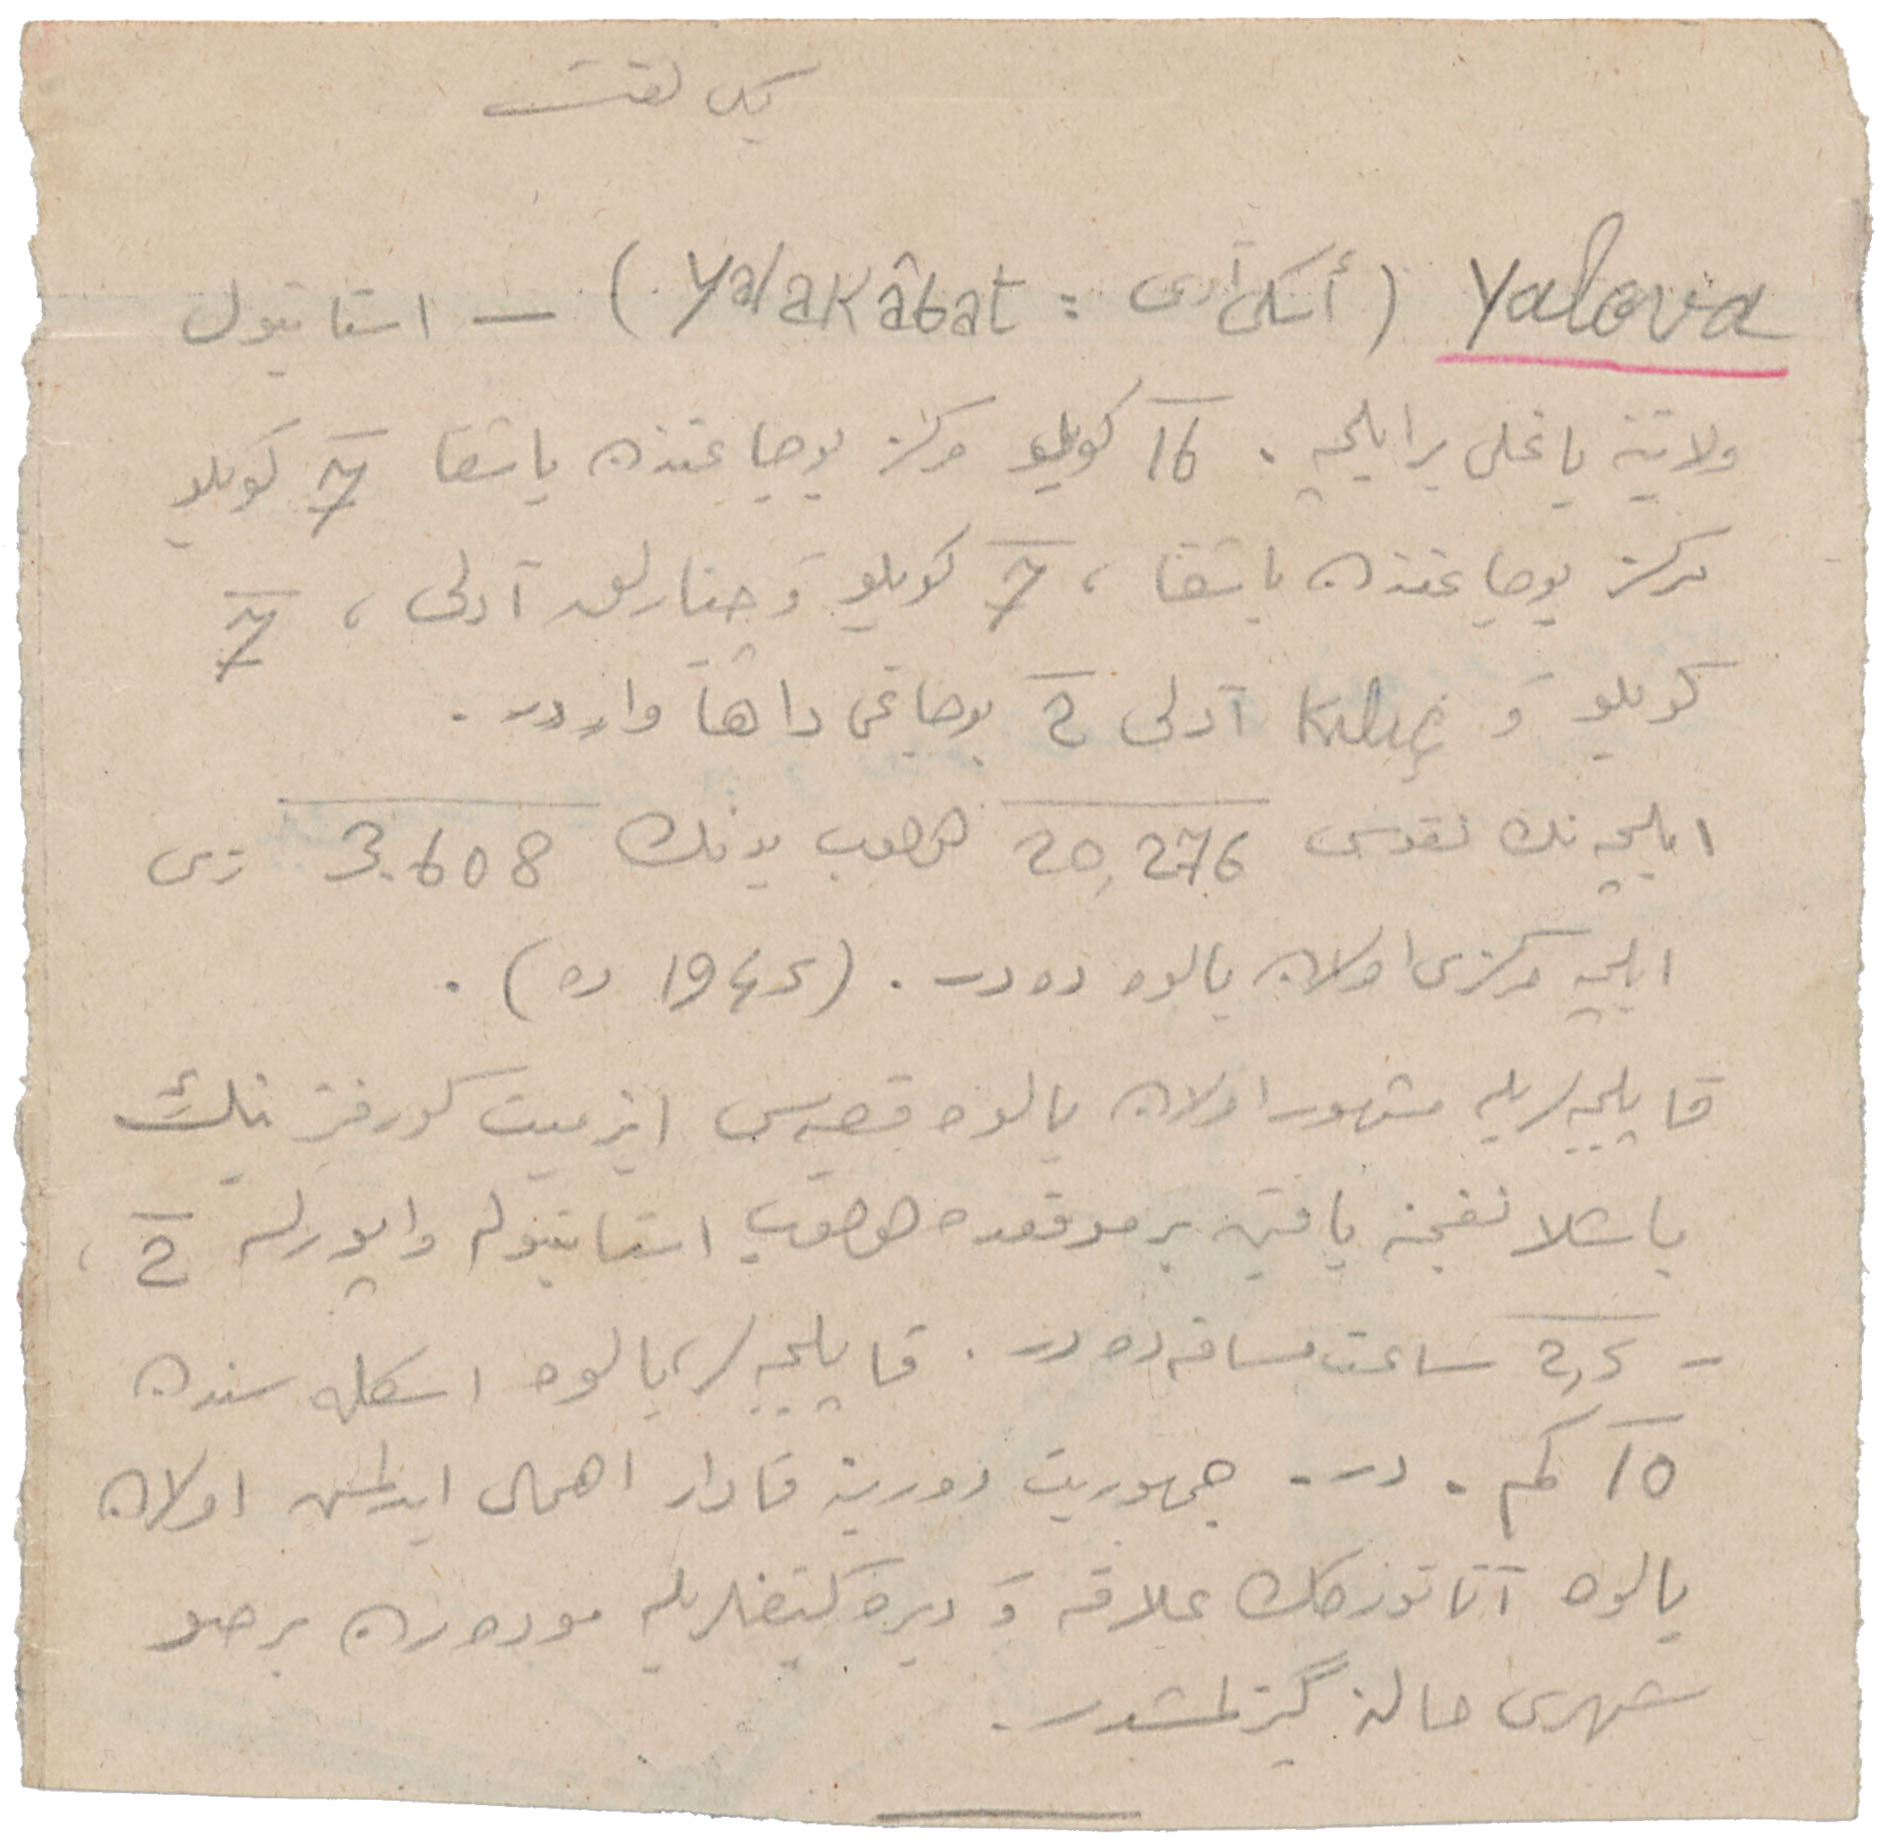 یکی لغت
Yalova (أسکی آدی : Yalakâbat) — استانبول
ولایتنه باغلی بر ایلچه . 16 کویلو مرکز بوجاغندن باشقا 7 کویلو
مرکز بوجاغندن باشقا ، 7 کویلو وَ چنارلق آدلی ، 7
کویلو وَ Kılıç آدلی 2 بوجاغی داها واردر .
ایلچه نك نفوسی 20,276 هپ بونك 3.608 زی
ایلچه مرکزی اولان یالوه ده در . (1945 ده) .
قاپلیجه لریله مشهور اولان یالوه قصبه سی ایزمیت کورفزینك
باشلانغجنه یاقین بر موقعده اولوب استانبوله واپورله 2 ،
– 2,5 ساعت مسافه ده در . قاپلیجه لر یالوه اسکله سندن
10 کم . در . جمهوریت دورینه قادار اهمال ایدلمش اولان
یالوه آتاتورکك علاقه وَ دیره کتیفلریله موده رن بر صو
شهری حالنه گیرلمشدر .